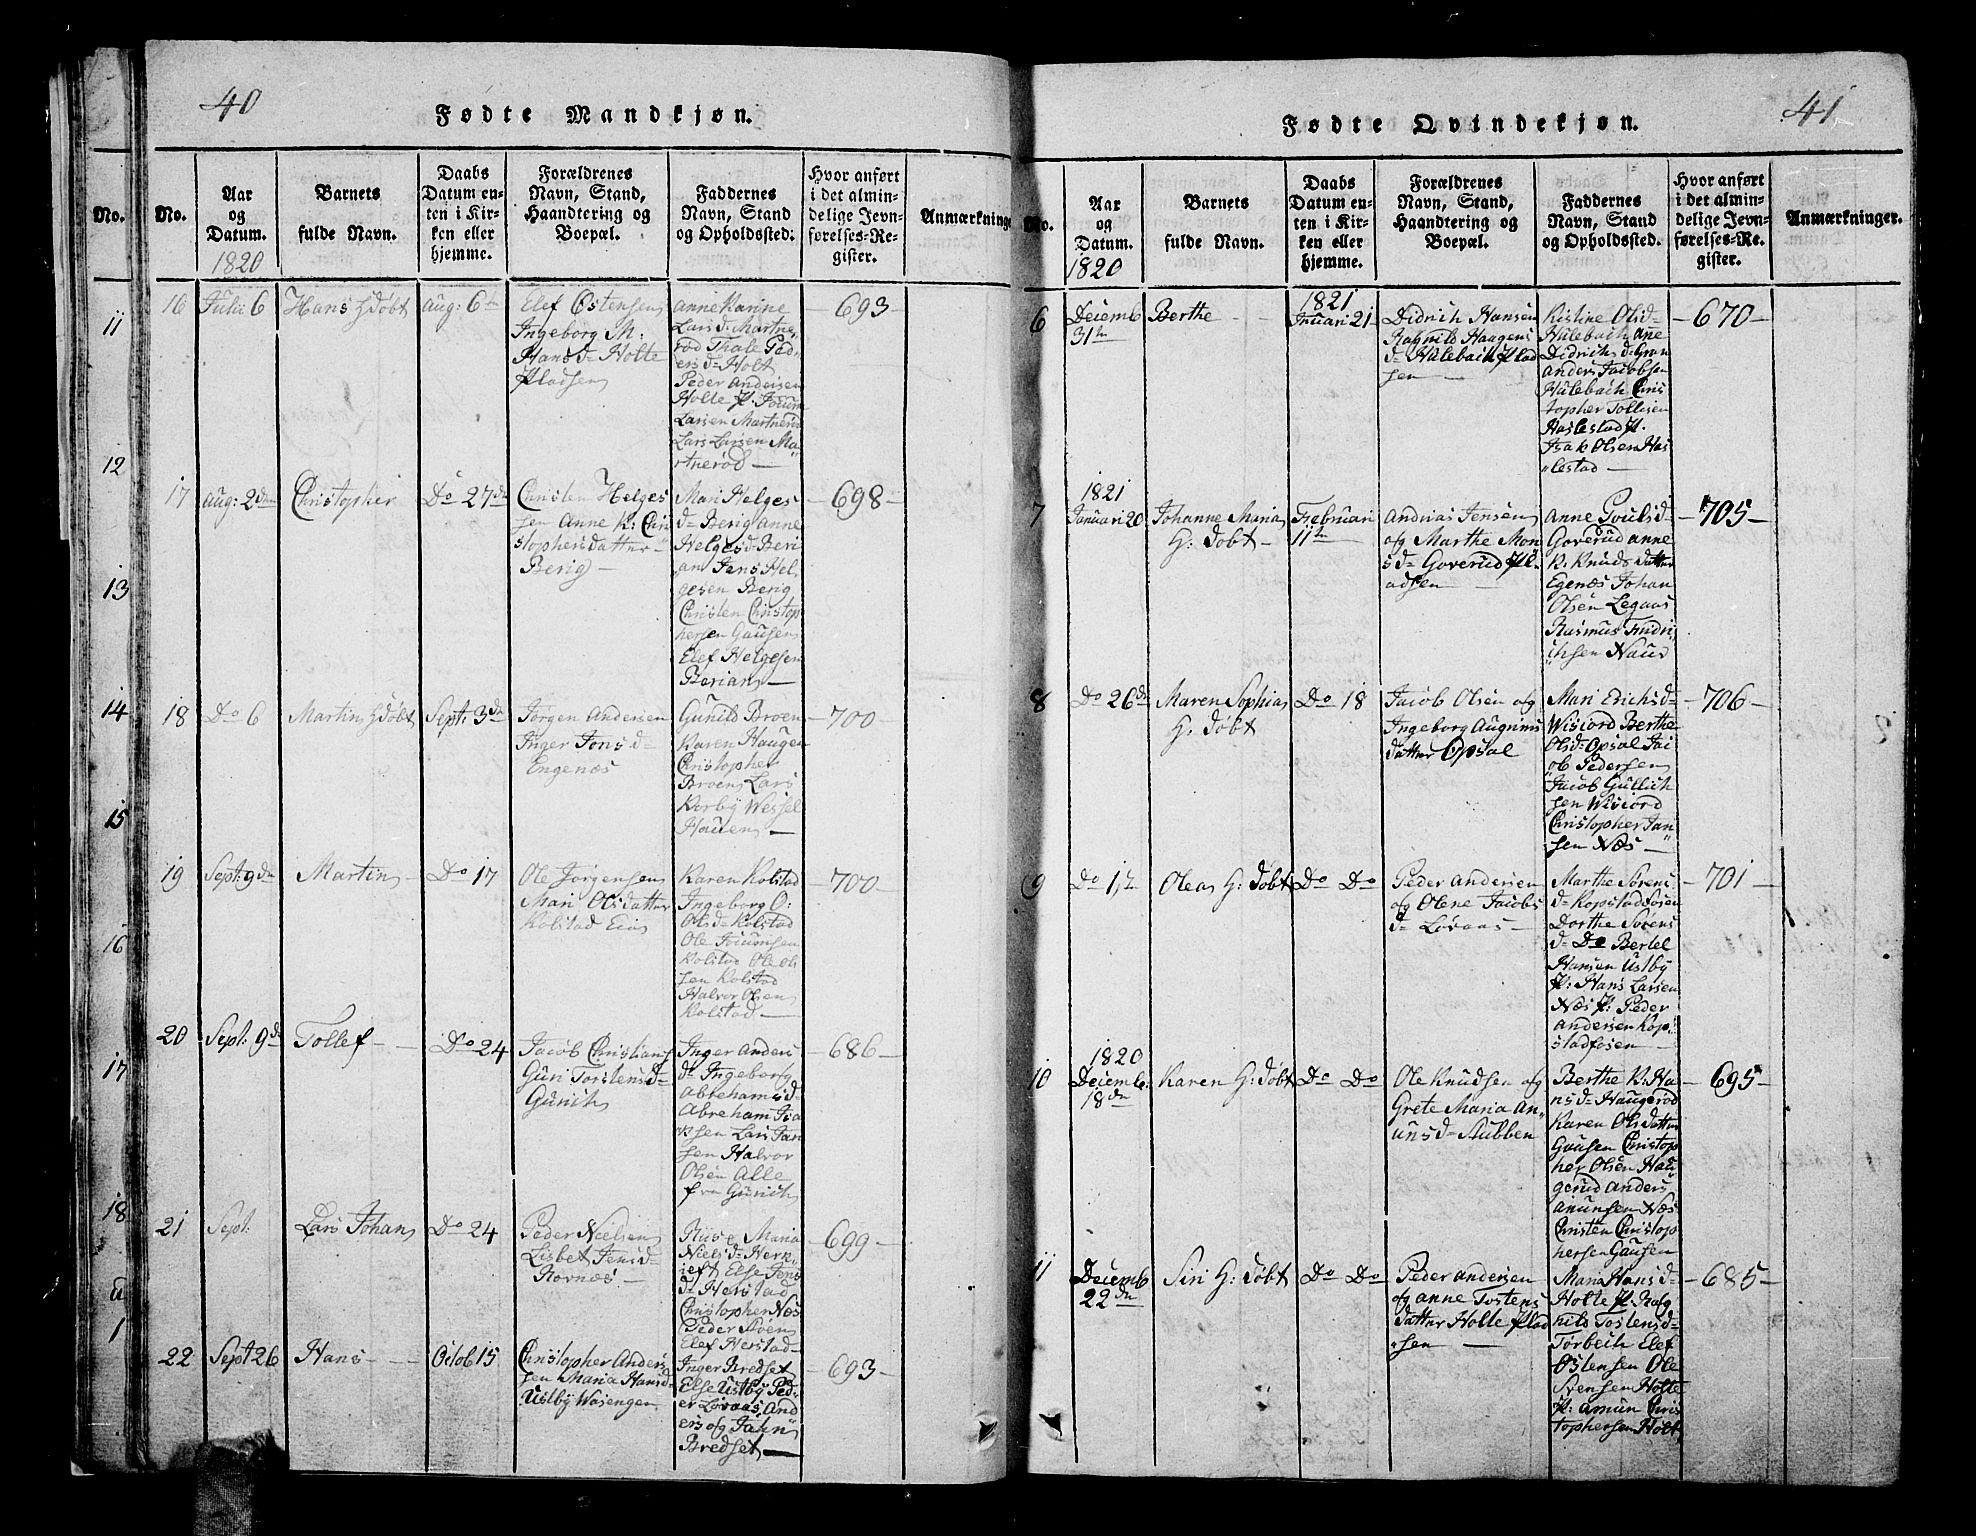 40
Fødte Mandkjøn.
No.
11
12
13
14
15
16
17
18
1
No.
Aar
og
Datum.
1820
Barnets
fulde Navn.
Daabs
Datum en-
ten i Kir-
ken eller
hjemme.
Forældrenes
Navn, Stand,
Haandtering og
Boepæl.
Faddernes
Navn, Stand
og Opholdssted.
Hvor anført
i det almin-
delige Jevn-
førelses-Re-
gister.
Anmærkninge
16
Julii 6
Hans Hdøbt
Aug: 6te
Elef Østensen
Ingeborg M:
Hansd= Holte
Pladsen
Anne Karine
Larsd= Martne
rød Thale Ped
ersd= Holt
Peder Andersen
Holte Pl: Joeum
Larsen Martnerud
Lars Larsen Ma
rtnerød —
— 693 —
17
Aug: 2den
Christopher
Do 27de
Christen Helges
sen Anne K: Chri
stophersdatter
Berig —
Mari Helges
d= Berig Anne
Helgesd= Beri
an Jens Hel
gesen Berig
Christen Christop
hersen Gausen
Elef Helgesen
Berian —
— 698 —
18
Do 6
Martin Hdøbt
Sept: 3de
Jørgen Andersen
Inger Jonsd=
Engenæs
Gunild Broen
Karen Haugen
Christopher
Broen Lars
Korby Wessel
Hauen —
— 700 —
19
Sept: 9de
Martin —
Do 17
Ole Jørgensen
Mari Olsdatter
Kolstad Eia
Karen Kolstad
Ingeborg O:
Olsd= Kolstad
Ole Joeumsen
Kolstad Ole Ol
sen Kolstad
Halvor Olsen
Kolstad —
— 700 —
20
Sept: 9de
Tollef —
Do 24
Jacob Christians
Guri Torstensd=
Gunich
Inger Anders
d= Ingeborg
Abrehamsd=
Abreham Isa
ksen Lars Jan
sen Halvor
Olsen Alle
fra Gunich
— 686 —
21
Sept:
Lars Johan
Do 24
Peder Nielsen
Lisbet Jensd=
Rovnæs —
Niels d= Herk
Else Jens
d= Herstad
Christopher Næs
Peder Støen
Elef Herstad —
— 699 —
22
Sept 26
Hans —
Octob 15
Christopher Anders
sen Maria Hansd=
Ustby Wasengen
Inger Bredset
Else Ustby Ped
er Løvaas And
ers og Jahn
Bredset —
— 693 —
41
Fødte Qvindekjøn.
No.
Aar
og
Datum.
1820
Barnets
fulde Navn.
Daabs
Datum en-
ten i Kir-
ken eller
hjemme.
Forældrenes
Navn, Stand,
Haandtering og
Boepæl.
Faddernes
Navn, Stand
og Opholdssted.
Hvor anført
i det almin-
delige Jevn-
førelses-Re-
gister.
Anmærkninger.
6
Decemb
31te
Berthe
1821
Jnuari 21
Didrich Hansen
Ragnild Haagens
d= Hulebach Plad
sen —
Kistine Olsd=
Hulebach Ane
Didrichsd= Gran
Anders Jacobsen
Hulebach Chris
topher Tollesen
Haslestad Pl.
Isak Olsen Has
lestad —
— 670 —
7
1821
Januari 20
Johanne Maria
H: døbt —
Februari
11te
Andrias Jensen
og Marthe Mon
sd= Goverud Pl.
adsen —
Anne Poulsd=
Goverud Anne
K. Knudsdatter
Egenæs Johan
Olsen Legaas
Rasmus Fridri
chsen Naur
— 705 —
8
Do 26de
Maren Sophia
H: døbt
Do 18
Jacob Olsen og
Ingeborg Augrims
datter Opsal
Mari Erichsd=
Wisiord Berthe
Olsd= Opsal Jac
ob Pedersen
Jacob Gullich
sen Wisiord
Christopher Jan
sen Næs —
— 706 —
9
Olea H: døbt
Do Do
Peder Andersen
og Olene Jacobs
d= Løvaas —
Marthe Sørens
d= Kopstadfosen
Dorthe Sørens
d= Do Bertel
Hansen Ustby
Pl: Hans Larsen
Næs Pl: Peder
Andersen Kop
stadfosen —
— 701 —
10
1820
Decemb.
18de
Karen H: døbt
Do Do
Ole Knudsen og
Grete Maria An
unsd= Stubben
Berthe K. Ha
nsd= Haugerød
Karen Olsdatter
Gausen Christop
her Olsen Hau
gerud Anders
Anunsen Næs
Christen Christop
hersen Gausen
— 695 —
11
Decemb
22de
Siri H: døbt
Do Do
Peder Andersen
og Anne Tostens
datter Holte Plad
sen —
Maria Hansd=
Holte Pl. Rag
nild Tostensd=
Torbech Elef
Østensen Ole
Svensen Holte
Pl: Amun Chris
tophersen Holt
— 685 —